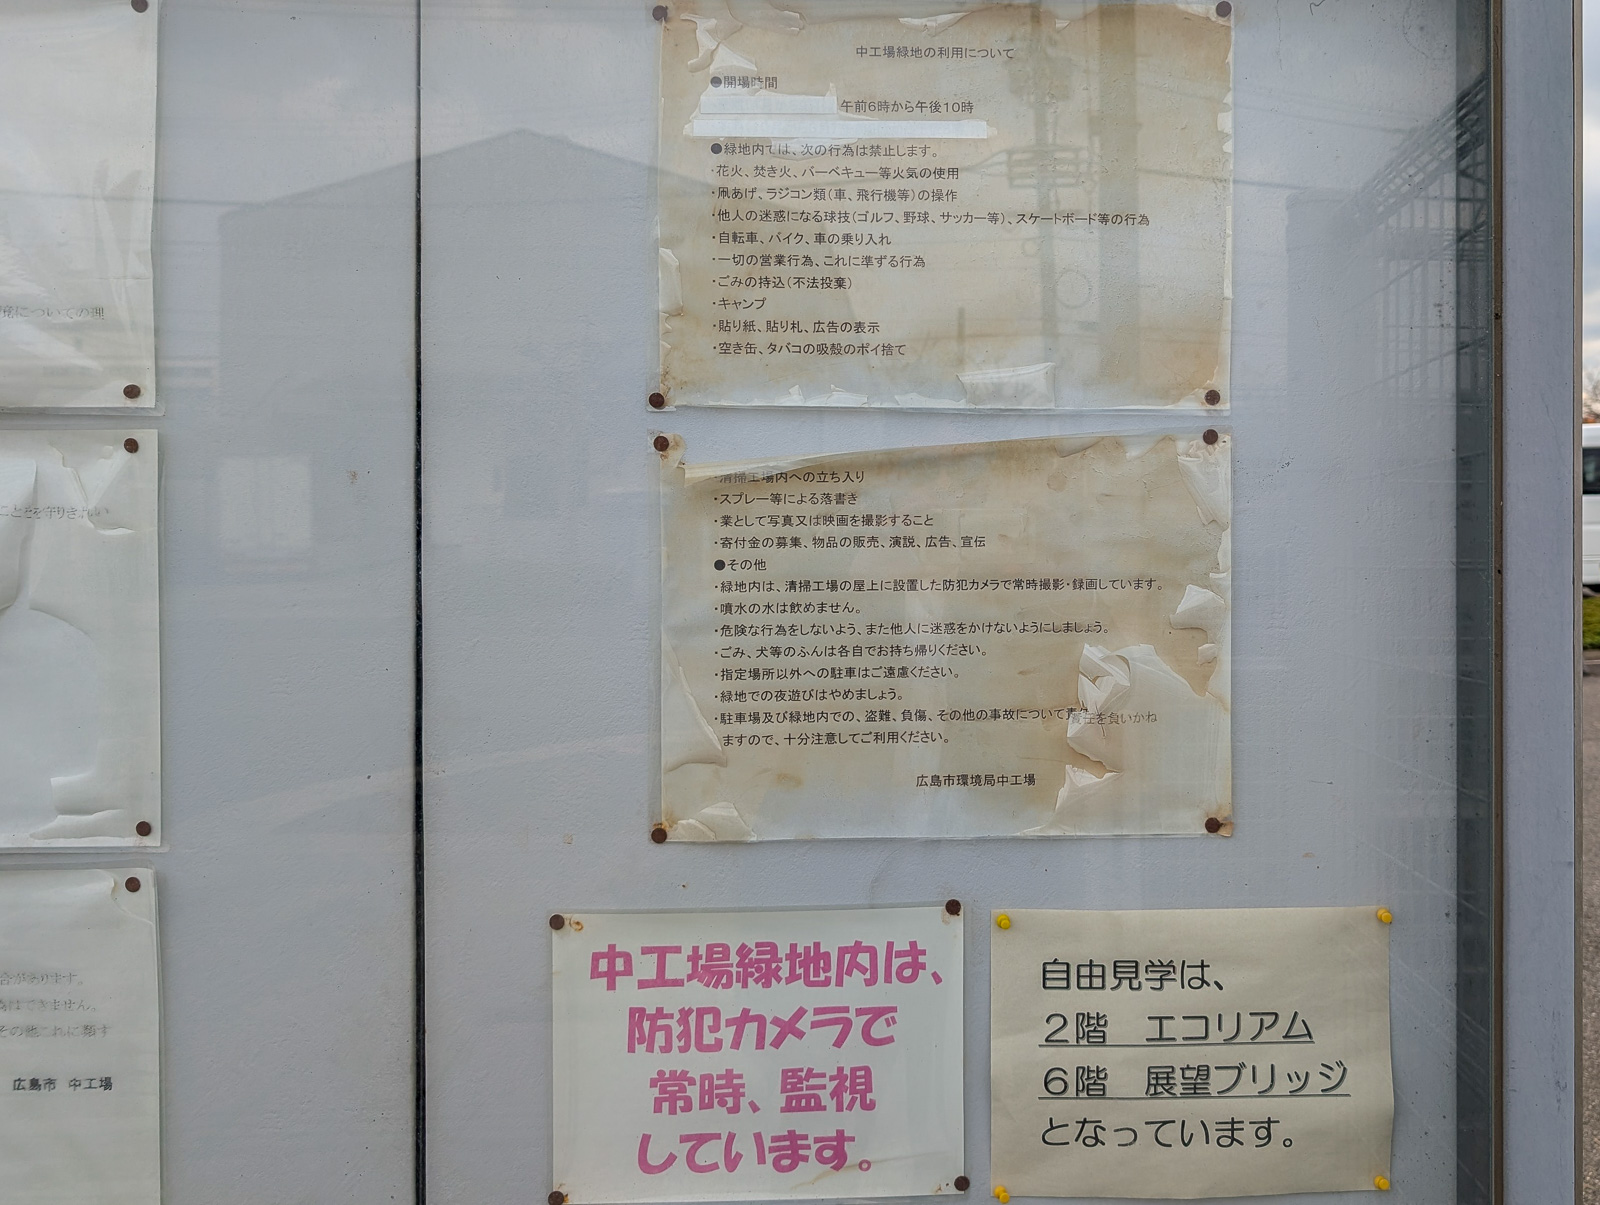 境についての理
ことを守りきれい
合があります。
はできません。
その他これに類す
広島市 中工場
中工場緑地の利用について
●開場時間
午前6時から午後10時
●緑地内では、次の行為は禁止します。
・花火、焚き火、バーベキュー等火気の使用
・凧あげ、ラジコン類(車、飛行機等)の操作
・他人の迷惑になる球技(ゴルフ、野球、サッカー等)、スケートボード等の行為
・自転車、バイク、車の乗り入れ
・一切の営業行為、これに準ずる行為
・ごみの持込(不法投棄)
・キャンプ
・貼り紙、貼り札、広告の表示
・空き缶、タバコの吸殻のポイ捨て
・清掃工場内への立ち入り
・スプレー等による落書き
・業として写真又は映画を撮影すること
・寄付金の募集、物品の販売、演説、広告、宣伝
●その他
・緑地内は、清掃工場の屋上に設置した防犯カメラで常時撮影・録画しています。
・噴水の水は飲めません。
・危険な行為をしないよう、また他人に迷惑をかけないようにしましょう。
・ごみ、犬等のふんは各自でお持ち帰りください。
・指定場所以外への駐車はご遠慮ください。
・緑地での夜遊びはやめましょう。
・駐車場及び緑地内での、盗難、負傷、その他の事故について責任を負いかね
ますので、十分注意してご利用ください。
広島市環境局中工場
中工場緑地内は、
防犯カメラで
常時、監視
しています。
自由見学は、
2階 エコリアム
6階 展望ブリッジ
となっています。